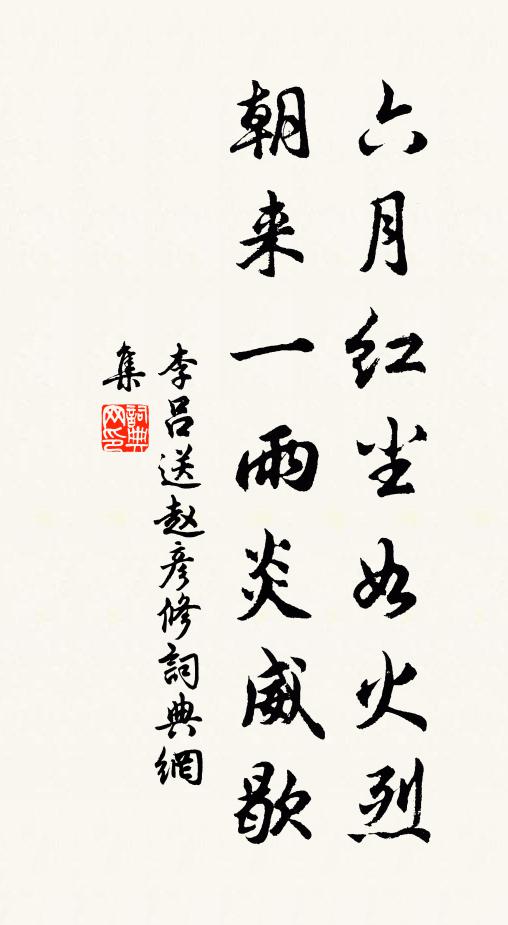 六月红尘如火烈
朝来一雨炎威歇
李吕送赵彦修詞典網
集
詞典网印